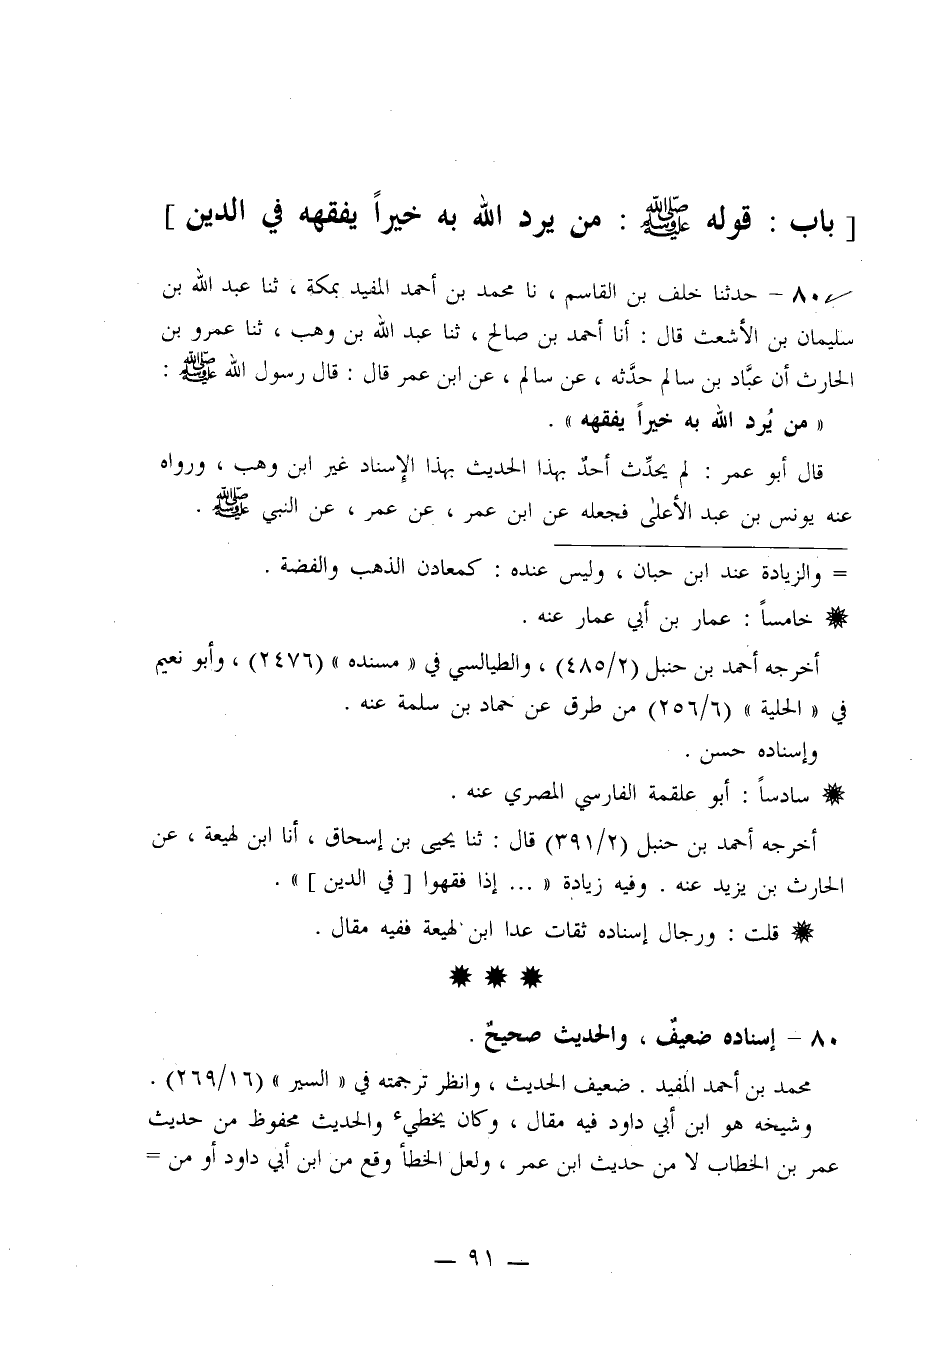 [ باب : قوله ﷺ : من يرد الله به خيراً يفقهه في الدين ]
٨٠ – حدثنا خلف بن القاسم ، نا محمد بن أحمد المفيد بمكة ، ثنا عبد الله بن
سليمان بن الأشعث قال : أنا أحمد بن صالح ، ثنا عبد الله بن وهب ، ثنا عمرو بن
الحارث أن عبَّاد بن سالم حدَّثه ، عن سالم ، عن ابن عمر قال : قال رسول الله ﷺ :
« من يُرد الله به خيراً يفقهه » .
قال أبو عمر : لم يحدِّث أحدٌ بهذا الحديث بهذا الإِسناد غير ابن وهب ، ورواه
عنه يونس بن عبد الأعلىٰ فجعله عن ابن عمر ، عن عمر ، عن النبي ﷺ .
= والزيادة عند ابن حبان ، وليس عنده : كمعادن الذهب والفضة .
✸ خامساً : عمار بن أبي عمار عنه .
أخرجه أحمد بن حنبل (٤٨٥/٢) ، والطيالسي في « مسنده » (٢٤٧٦) ، وأبو نعيم
في « الحلية » (٢٥٦/٦) من طرق عن حماد بن سلمة عنه .
وإسناده حسن .
✸ سادساً : أبو علقمة الفارسي المصري عنه .
أخرجه أحمد بن حنبل (٣٩١/٢) قال : ثنا يحيى بن إسحاق ، أنا ابن لهيعة ، عن
الحارث بن يزيد عنه . وفيه زيادة « ... إذا فقهوا [ في الدين ] » .
✸ قلت : ورجال إسناده ثقات عدا ابن لهيعة ففيه مقال .
✸ ✸ ✸
٨٠ – إسناده ضعيفٌ ، والحديث صحيحٌ .
محمد بن أحمد المفيد . ضعيف الحديث ، وانظر ترجمته في « السير » (٢٦٩/١٦) .
وشيخه هو ابن أبي داود فيه مقال ، وكان يخطيء والحديث محفوظ من حديث
عمر بن الخطاب لا من حديث ابن عمر ، ولعل الخطأ وقع من ابن أبي داود أو من =
— ٩١ —